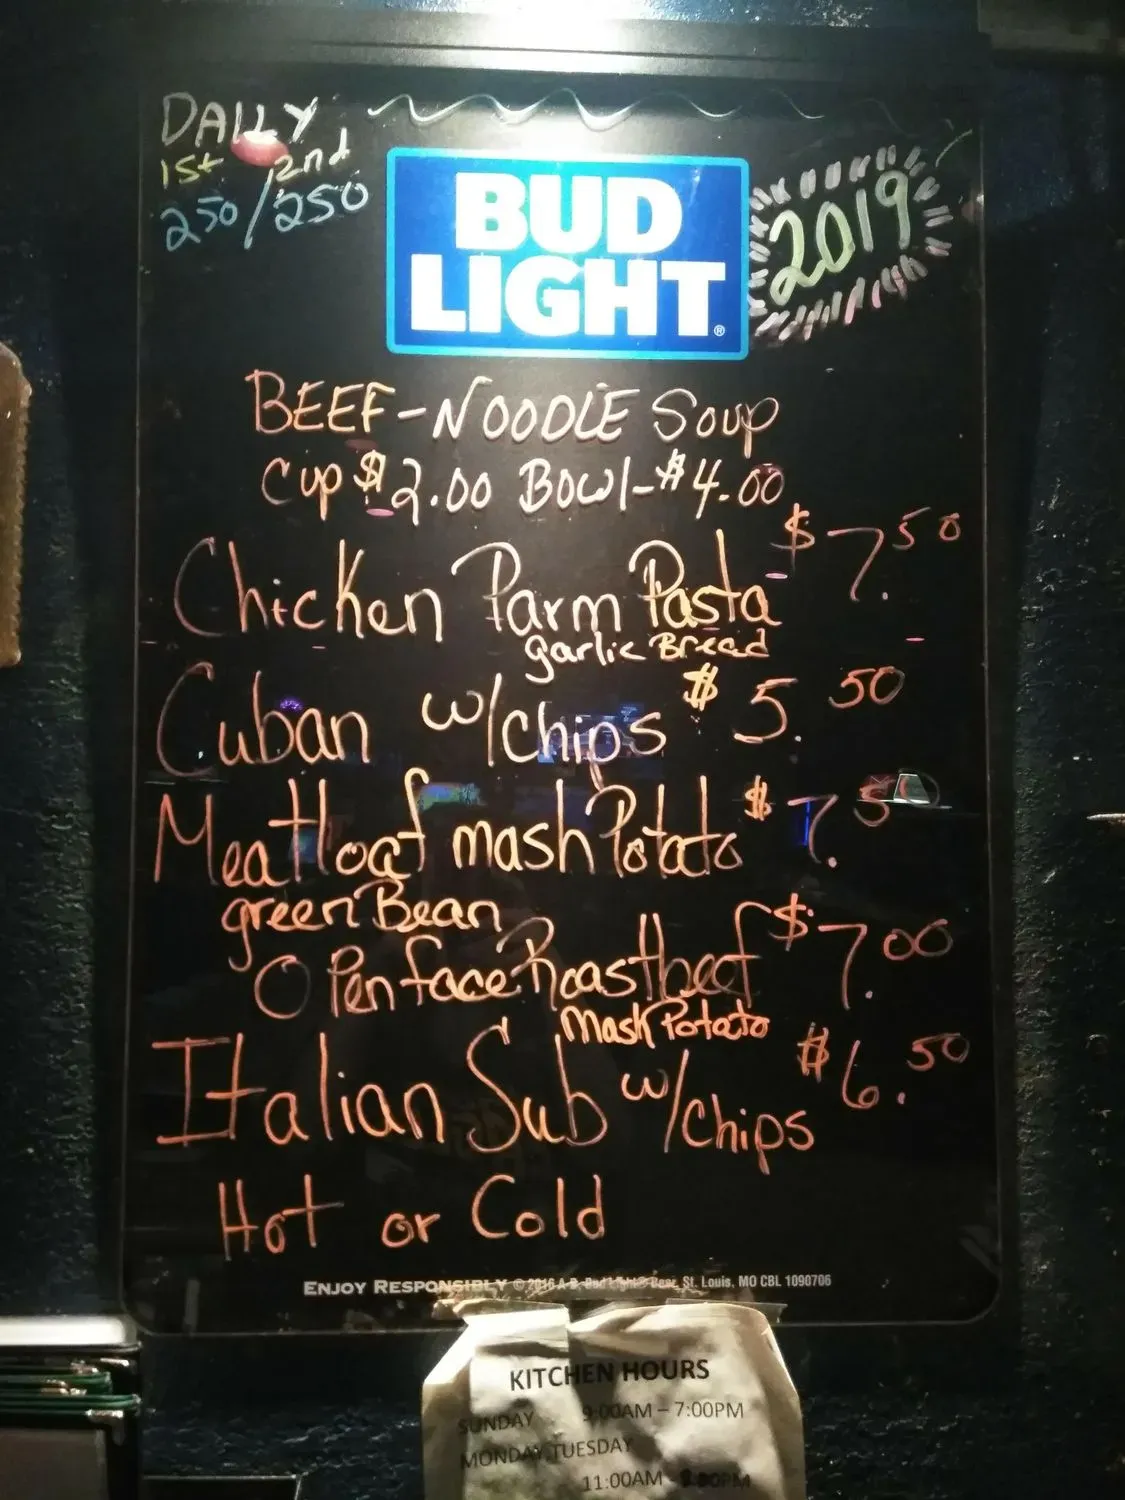 DAILY
1st 2nd
250/250
BUD
LIGHT®
2019
BEEF-NOODLE Soup
Cup $2.00 BOWl-$4.00
Chicken Parm Pasta $7.50
garlic Bread
Cuban w/chips $5.50
Meatloaf mash Potato $7.50
green Bean
OPenface Roastbeef $7.00
Mash Potato
Italian Sub w/chips $6.50
Hot or Cold
ENJOY RESPONSIBLY © 2016 A-B, Bud Light® Beer, St. Louis, MO CBL 1090706
KITCHEN HOURS
SUNDAY 9:00AM – 7:00PM
MONDAY, TUESDAY
11:00AM -